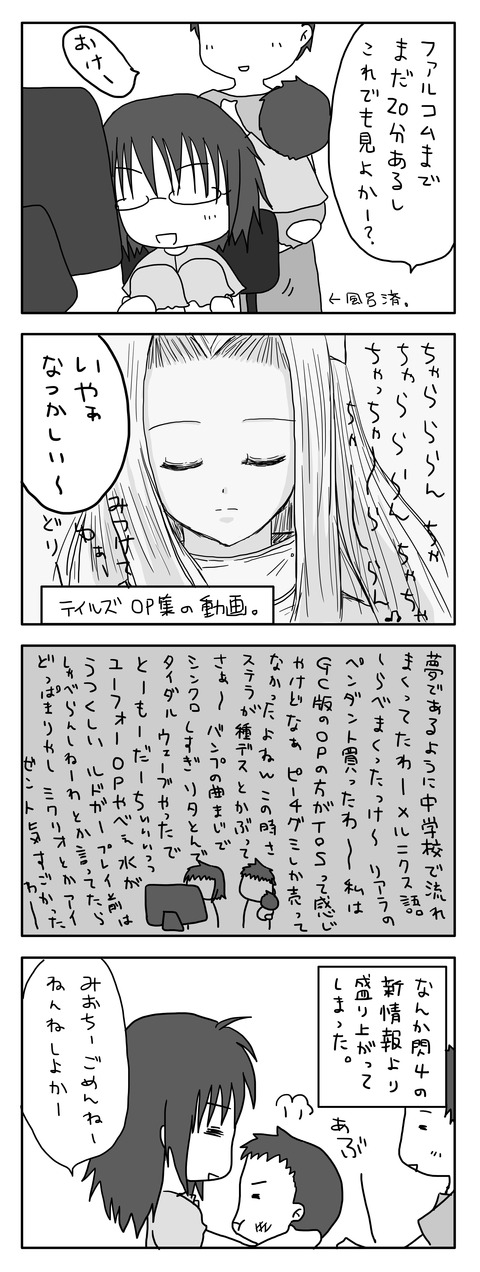 ファルコムまで
まだ20分あるし
これでも見よかー?
おけー
←風呂済。
ちゃらららん
ちゃらららーん ちゃちゃ
ちゃっちゃーらーらーらん♪
いやぁ
なつかしい〜
みつけて
わぁー
どり
テイルズOP集の動画。
夢であるように中学校で流れ
まくってたわーメルニクス語。
しらべまくったっけ〜リアラの
ペンダント買ったわ〜私は
GC版のOPの方がTOSって感じ
やけどなぁピー4グミしか売って
なかったよねwこの時さ
ステラが種デスとかぶって
さぁ〜バンプの曲まじで
シンクロしすぎリタとんで
タイダルウェーブやったで
とーもーだーちぃぃぃっっ
ユーフォーOPやべぇ水が
うつくしいルドガープレイ前は
しゃべらんしねーわとか言ってたら
どっぱまりやしミクリオとかアイ
ゼント気すごかったわー
なんか閃4の
新情報より
盛り上がって
しまった。
あぶ
みおちーごめんねー
ねんねしよかー